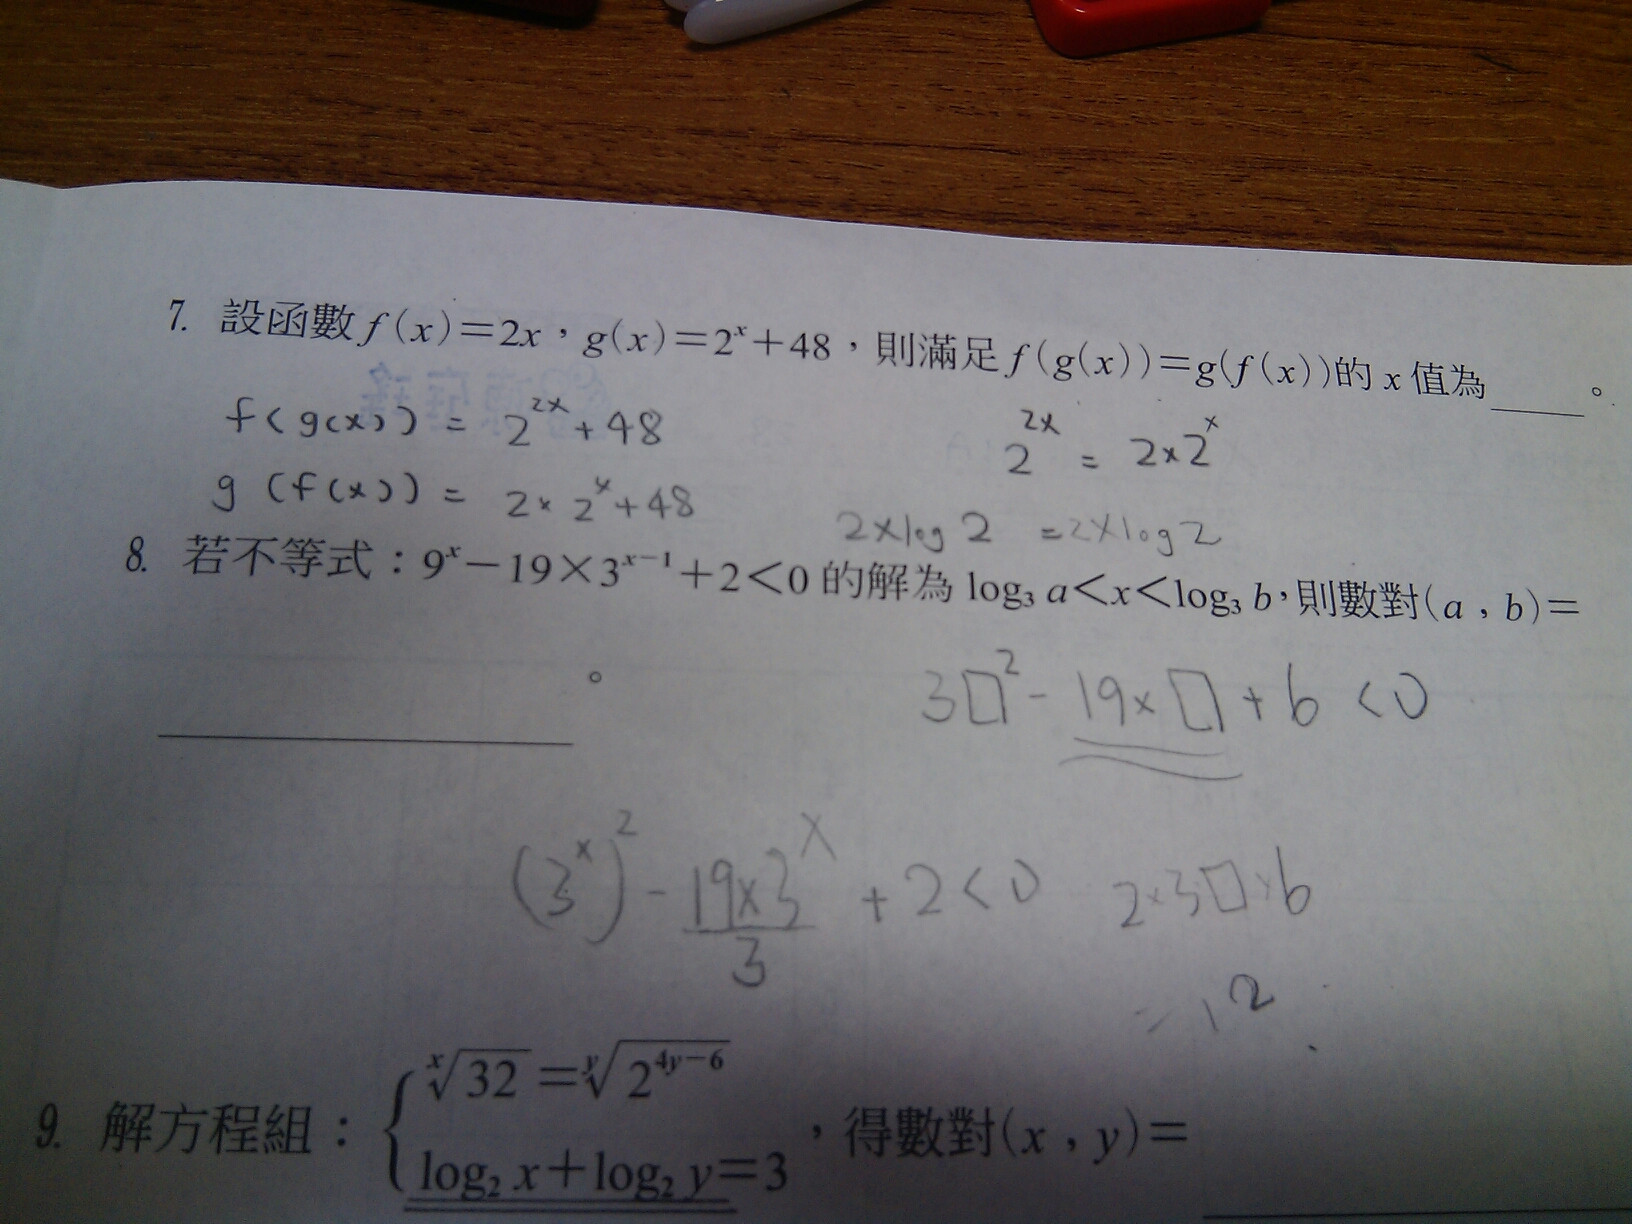 7. 設函數 f(x)=2x，g(x)=2^x+48，則滿足 f(g(x))=g(f(x))的 x 值為____。
f(g(x)) = 2^{2x}+48
2^{2x} = 2×2^x
g(f(x)) = 2×2^x+48
2x log 2 = 2x log 2
8. 若不等式：9^x－19×3^{x－1}+2<0 的解為 log₃ a<x<log₃ b，則數對(a，b)=
____。
3□²- 19×□ + 6 <0
(3^x)² - 19×3^x/3 + 2<0
2×3□×6
= 12
9. 解方程組：{ ^x√32 = ^y√2^{4y－6}
log₂ x+log₂ y=3 ，得數對(x，y)=